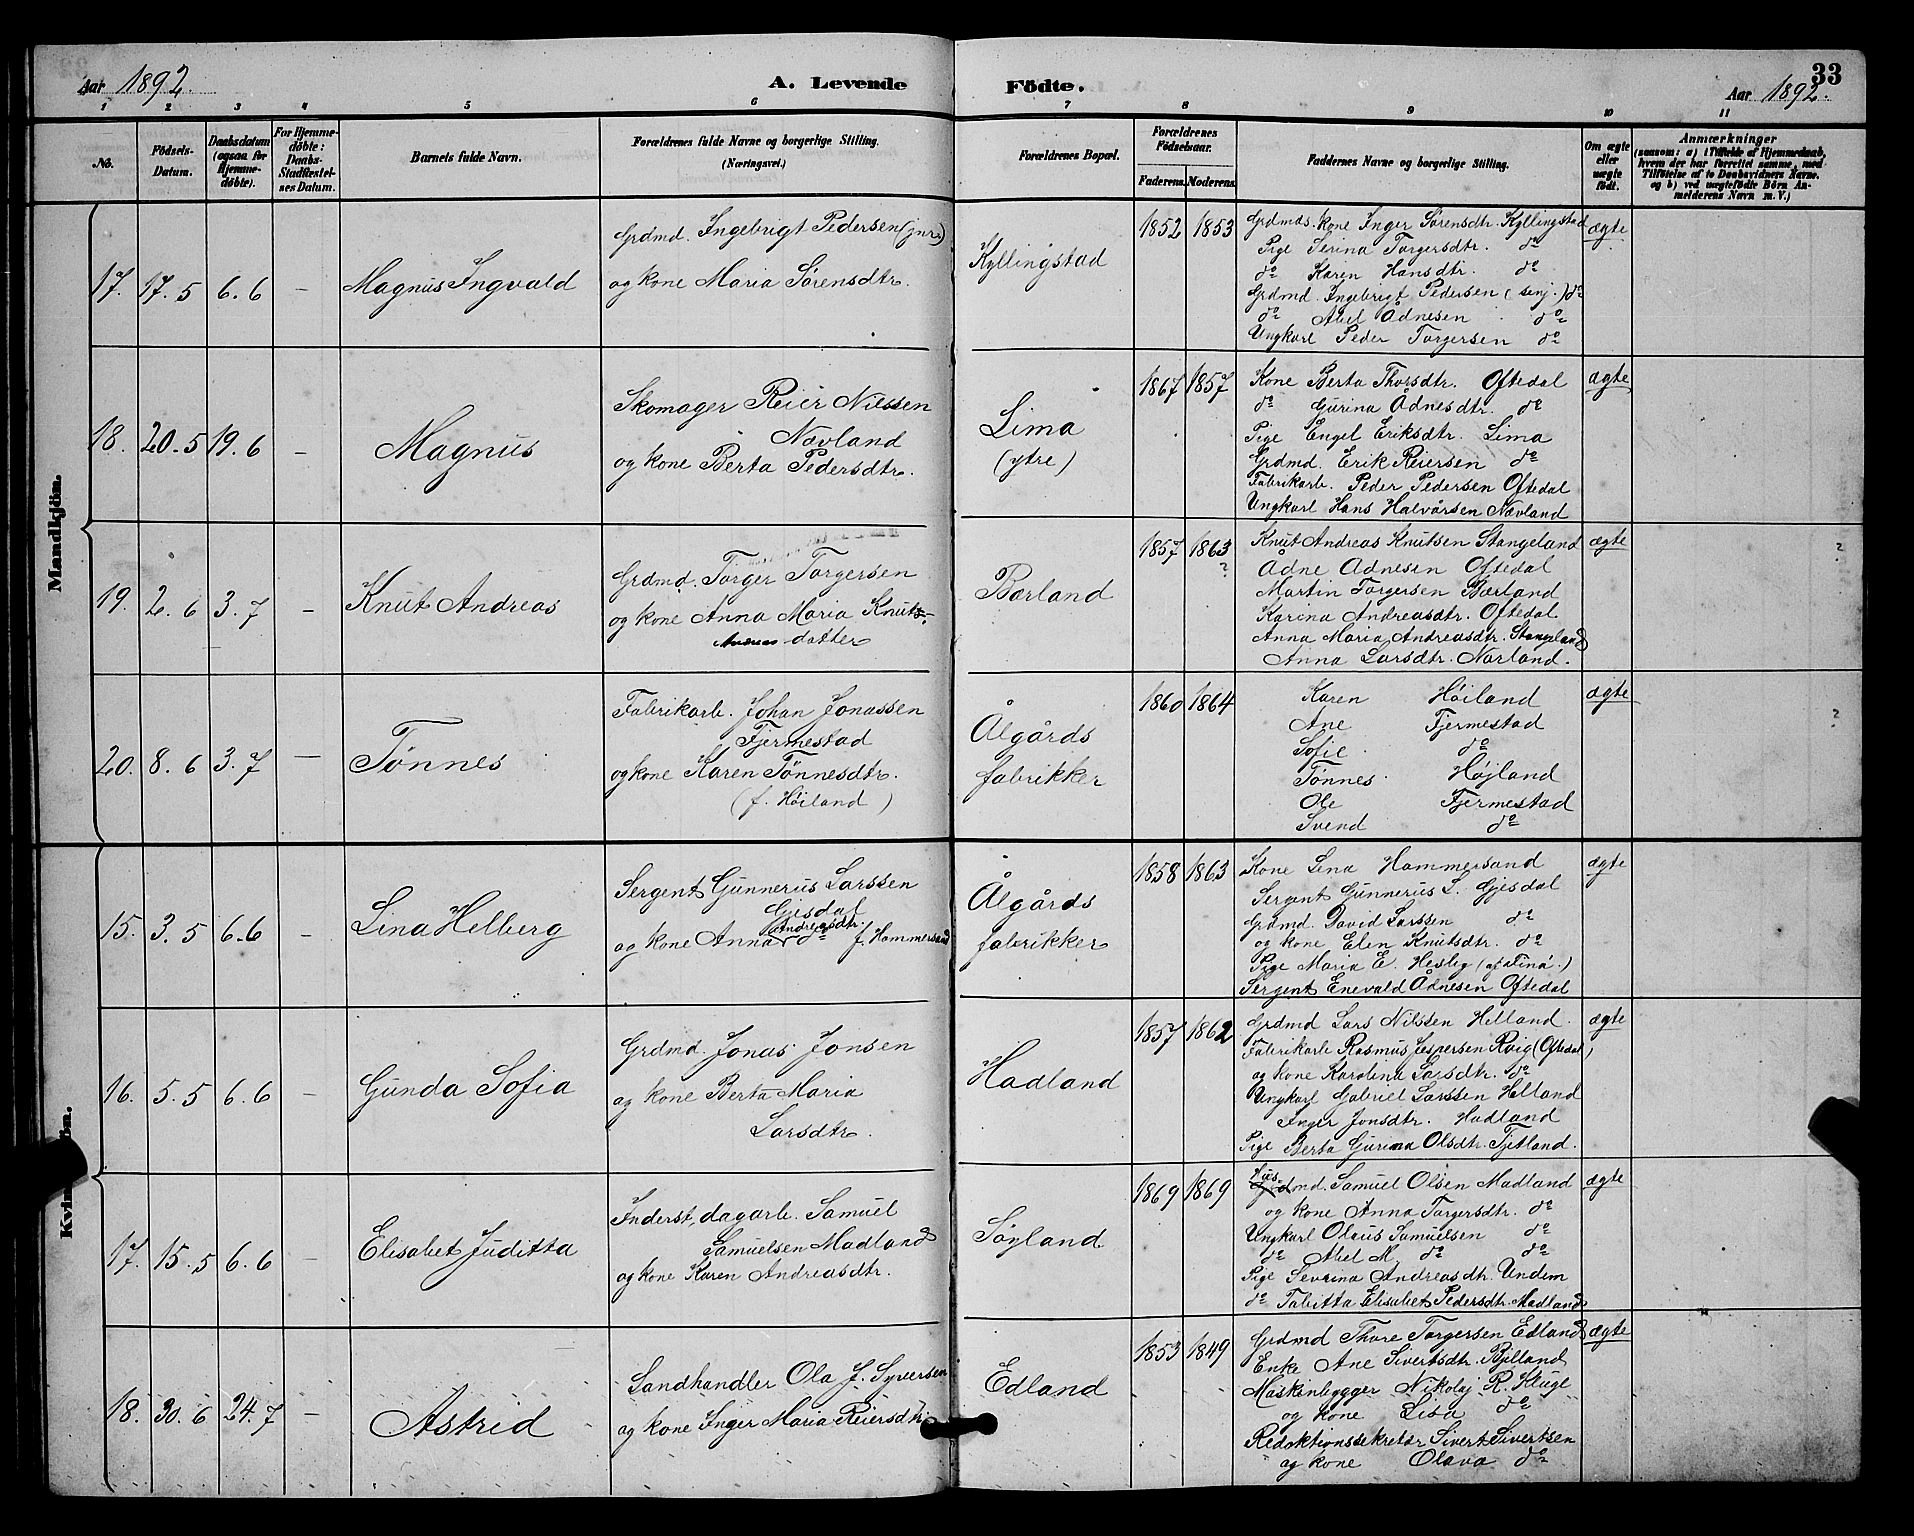 Aar 1892.
A. Levende
Födte.
33
Aar 1892.
1 2 3 4 5 6 7 8 9 10 11
No.
Födsels-
Datum.
Daabsdatum
(ogsaa for
Hjemme-
döbte).
For Hjemme-
döbte:
Daabs-
Stadfæstel-
ses Datum.
Barnets fulde Navn.
Forældrenes fulde Navne og borgerlige Stilling.
(Næringsvei.)
Forældrenes Bopæl.
Forældrenes
Födselsaar.
Faderens. Moderens.
Faddernes Navne og borgerlige Stilling.
Om ægte
eller
uægte
födt.
Anmærkninger
(saasom: a) i Tilfælde af Hjemmedaab,
hvem der har forrettet samme, med
Tilföielse af to Daabsvidners Navne.
og b) ved uægtefödte Börn An-
melderens Navn m. V.)
Mandkjön.
17. 17.5 6.6 –
Magnus Ingvald
Grdmd. Ingebrigt Pedersen (jnr.)
og kone Maria Sørensdtr.
Kyllingstad
1852 1853
Grdmds. kone Inger Sørensdtr. Kyllingstad
Pige Serina Torgersdtr. do
do Karen Hansdtr. do
Grdmd. Ingebrigt Pedersen (senj.) do
do Abel Ådnesen do
Ungkarl Peder Torgersen do
ægte
18. 20.5 19.6 –
Magnus
Skomager Reier Nilssen
Nævland
og kone Berta Pedersdtr.
Lima
(ytre)
1867 1857
Kone Berta Thorsdtr. Oftedal
do Gurina Ådnesdtr. do
Pige Engel Eriksdtr. Lima
Grdmd. Erik Reiersen do
Fabrikarb. Peder Pedersen Oftedal
Ungkarl Hans Halvårsen Nævland
ægte
19. 2.6 3.7 –
Knut Andreas
Grdmd. Torger Torgersen
og kone Anna Maria Knuts-
Andreas datter
Bærland
1857 1863
?
Knut Andreas Knutsen Stangeland
Ådne Ådnesen Oftedal
Martin Torgersen Bærland
Karina Andreasdtr. Oftedal
Anna Maria Andreasdtr. Stangeland
Anna Larsdtr. Norland.
ægte
?
20. 8.6 3.7 –
Tønnes
Fabrikarb. Johan Jonassen
Fjermestad
og kone Karen Tønnesdtr.
(f. Høiland)
Ålgårds
fabrikker
1860 1864
Karen Høiland
Ane Fjermestad
Sofie do
Tønnes Højland
Ole Fjermestad
Svend do
ægte
?
15. 3.5 6.6 –
Lina Helberg
Sergent Gunnerus Larssen
Gjesdal
og kone Anna Andreasdtr. do f. Hammersand
Ålgårds
fabrikker
1858 1863
Kone Lina Hammersand
Sergent Gunnerus L. Gjesdal
Grdmd. David Larssen do
og kone Elen Knutsdtr. do
Pige Maria E. Hesby
Sergent Enevald Ådnesen Oftedal
ægte
16. 5.5 6.6 –
Gunda Sofia
Grdmd. Jonas Jonsen
og kone Berta Maria
Larsdtr.
Hadland
1857 1862
Grdmd Lars Nilssen Helland.
Fabrikarb Rasmus Jespersen Røig (Oftedal)
og kone Karolina Larsdtr. do
Ungkarl Gabriel Larssen Helland
Inger Jonsdtr. Hadland
Pige Berta Gurina Olsdtr. Tjetland.
ægte
17. 15.5 6.6 –
Elisabet Juditta
Inderst, dagarb. Samuel
Samuelsen Madland
og kone Karen Andreasdtr.
Søyland
1869 1869
Husmd. Samuel Olsen Madland
og kone Anna Torgersdtr. do
Ungkarl Olaus Samuelsen do
do Abel M. do do
Pige Severina Andreasdtr. Undem
do Tabitta Elisabet Pedersdtr. Madland
ægte
18. 30.6 24.7 –
Astrid
Landhandler Ola J. Syversen
og kone Inger Maria Reiersdtr.
Edland
1853 1849
Grdmd Thore Torgersen Edland
Enke Ane Sivertsdtr. Bjelland
Maskinbygger Nikolaj R. Kluge
og kone Lisa do
Redaktionssekretær Sivert Sivertsen
og kone Olava do
ægte